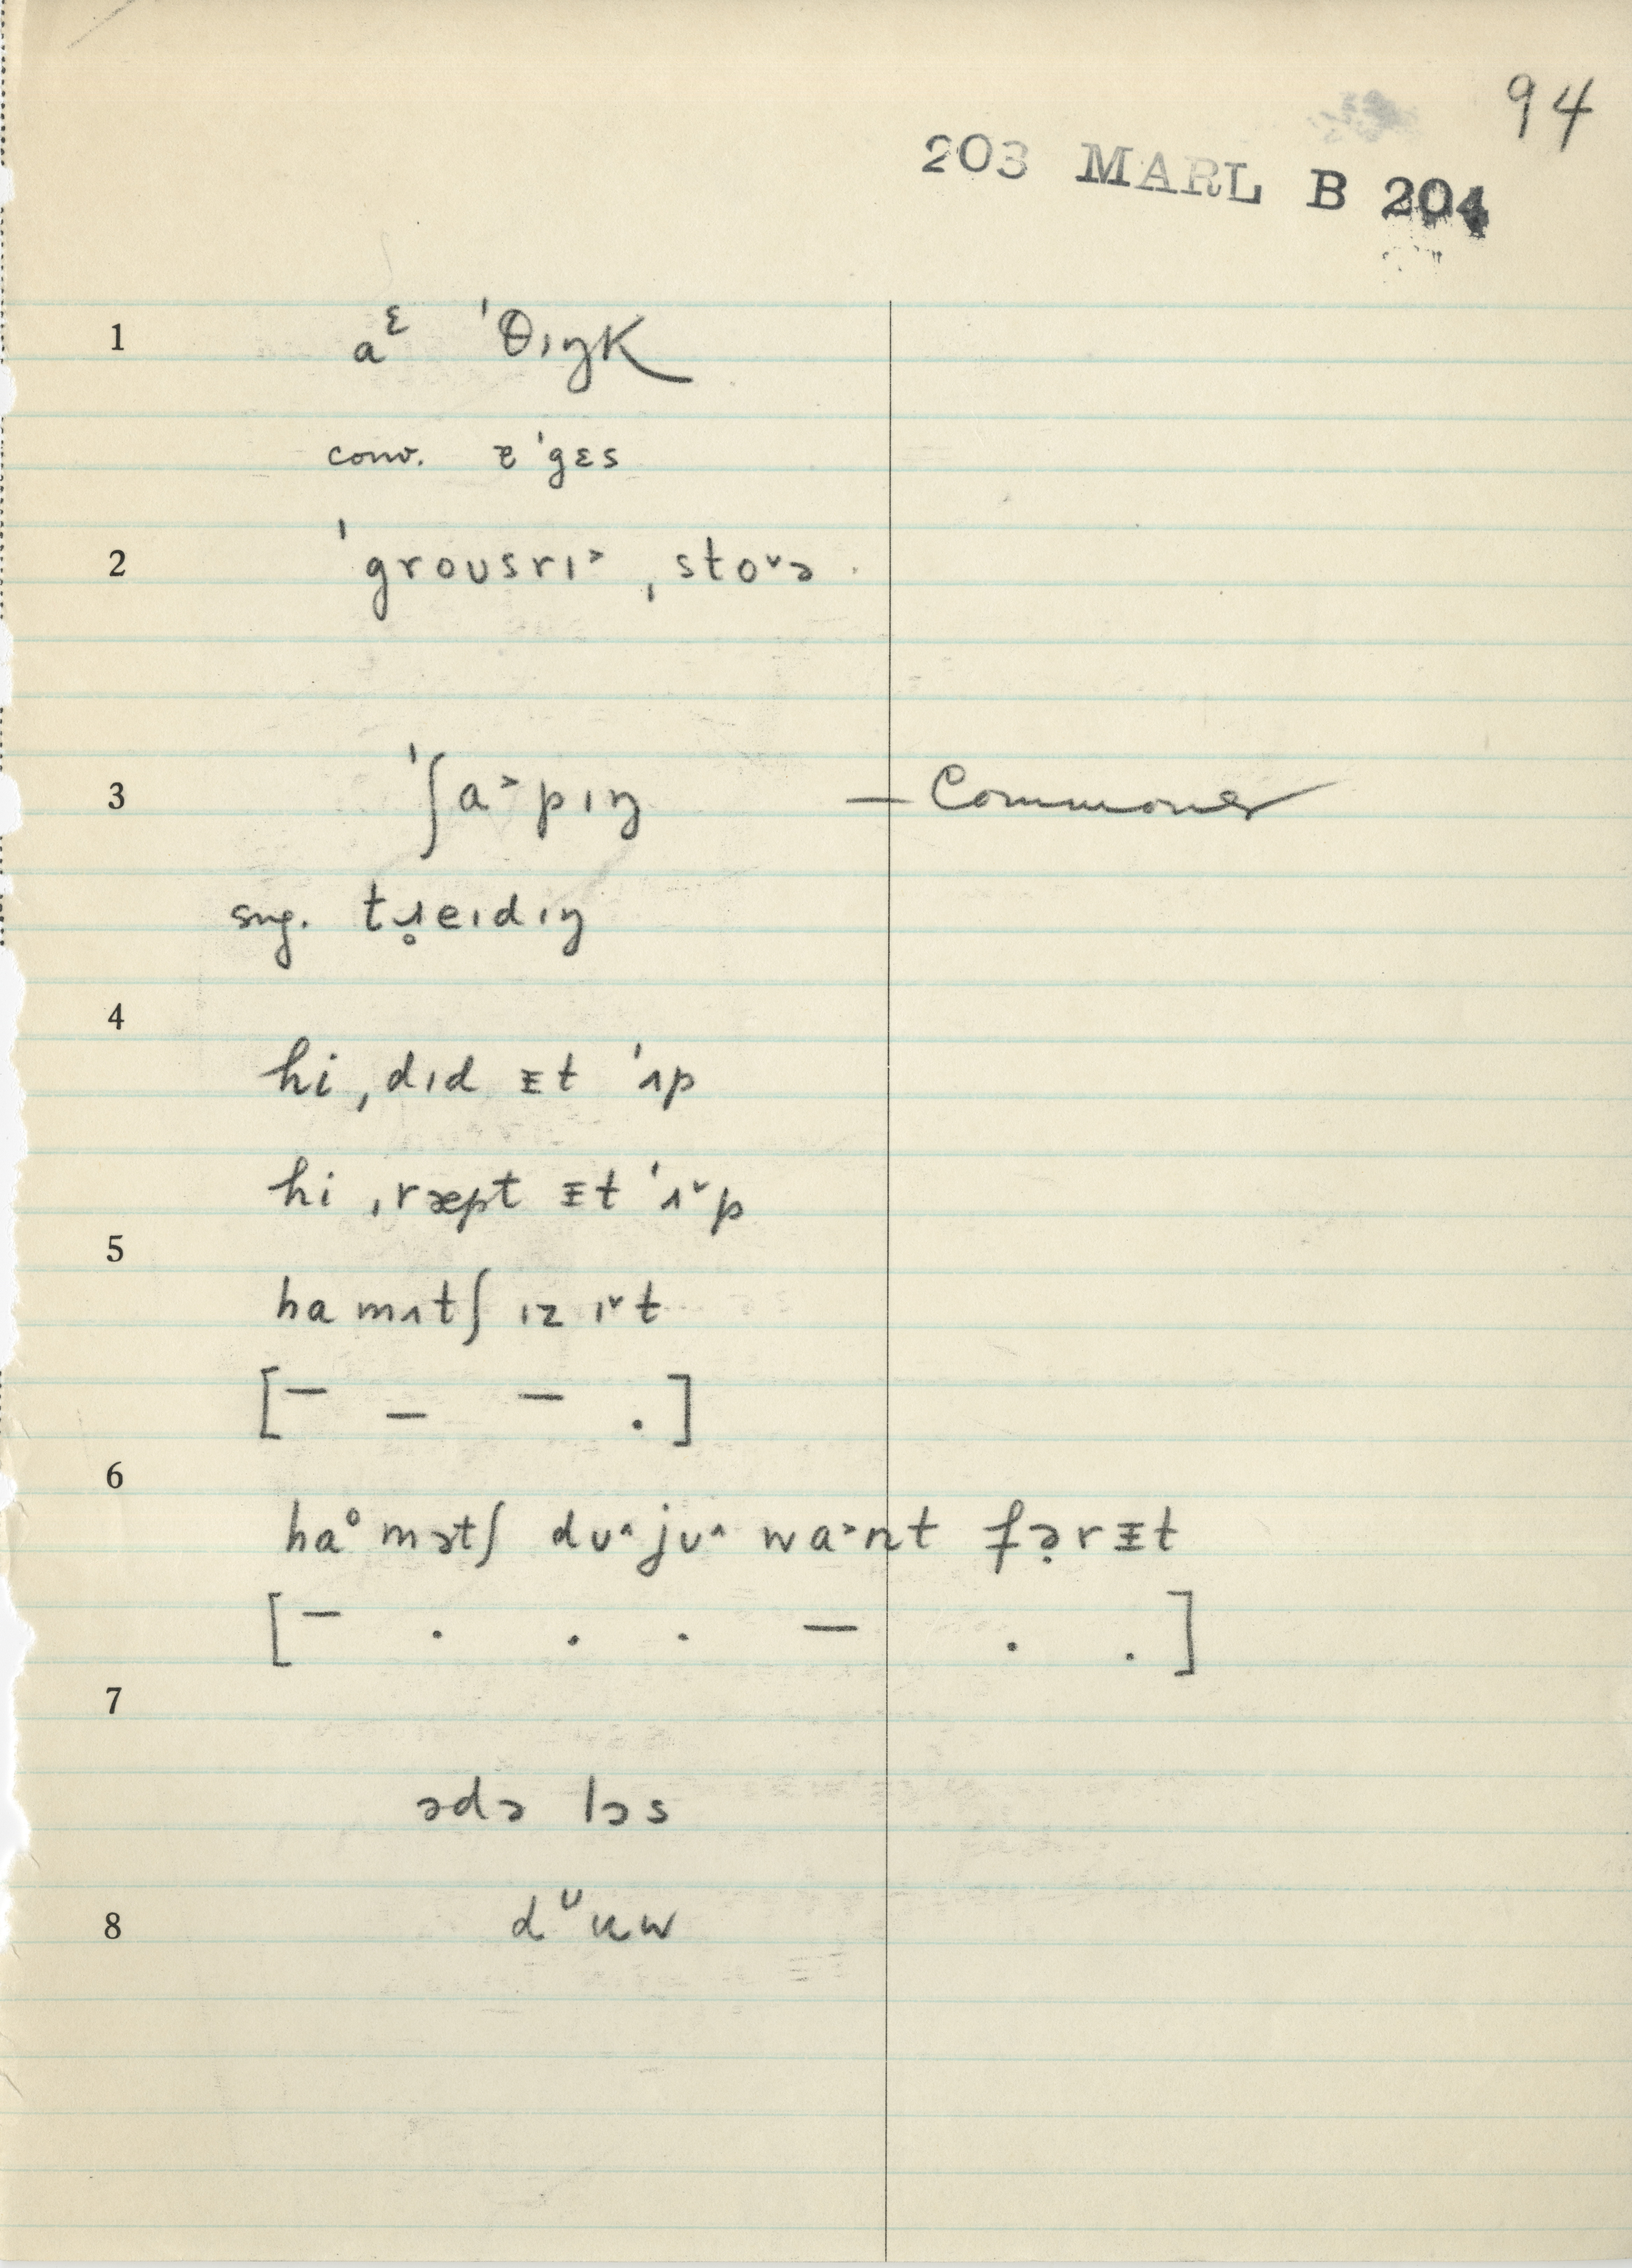 94
203 MARL B 204
1 aᵋ ˈθɪŋk
conv. ᵻ ˈgɛs
2 ˈgroʊsrɪ˃ ˌsto˅ə
3 ˈʃɑ˃pɪŋ — Commoner
sug. tɹ̥eɪdɪŋ
4
hi ˌdɪd ᵻt ˈʌp
hi ˌræpt ᵻt ˈʌ˅p
5
ha mʌtʃ ɪz ɪ˅t
[– – – .]
6
haᵒ mətʃ dʊ˄jʊ˄ wɑ˃nt fə̣rᵻt
[– . . . – . .]
7
ədə lɔs
8 dᶷuw